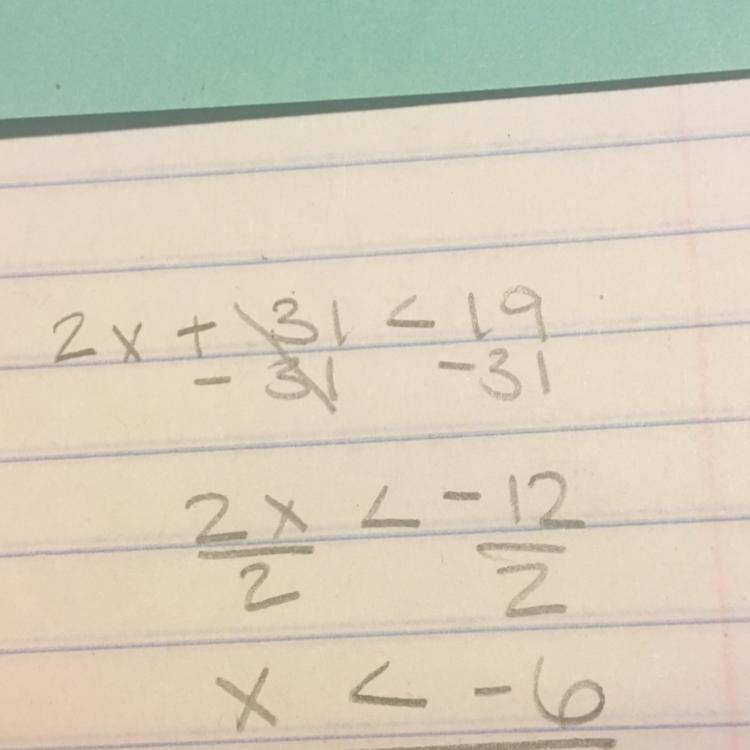 2x + 31 < 19
- 31 -31
2x < -12
2 2
x < -6